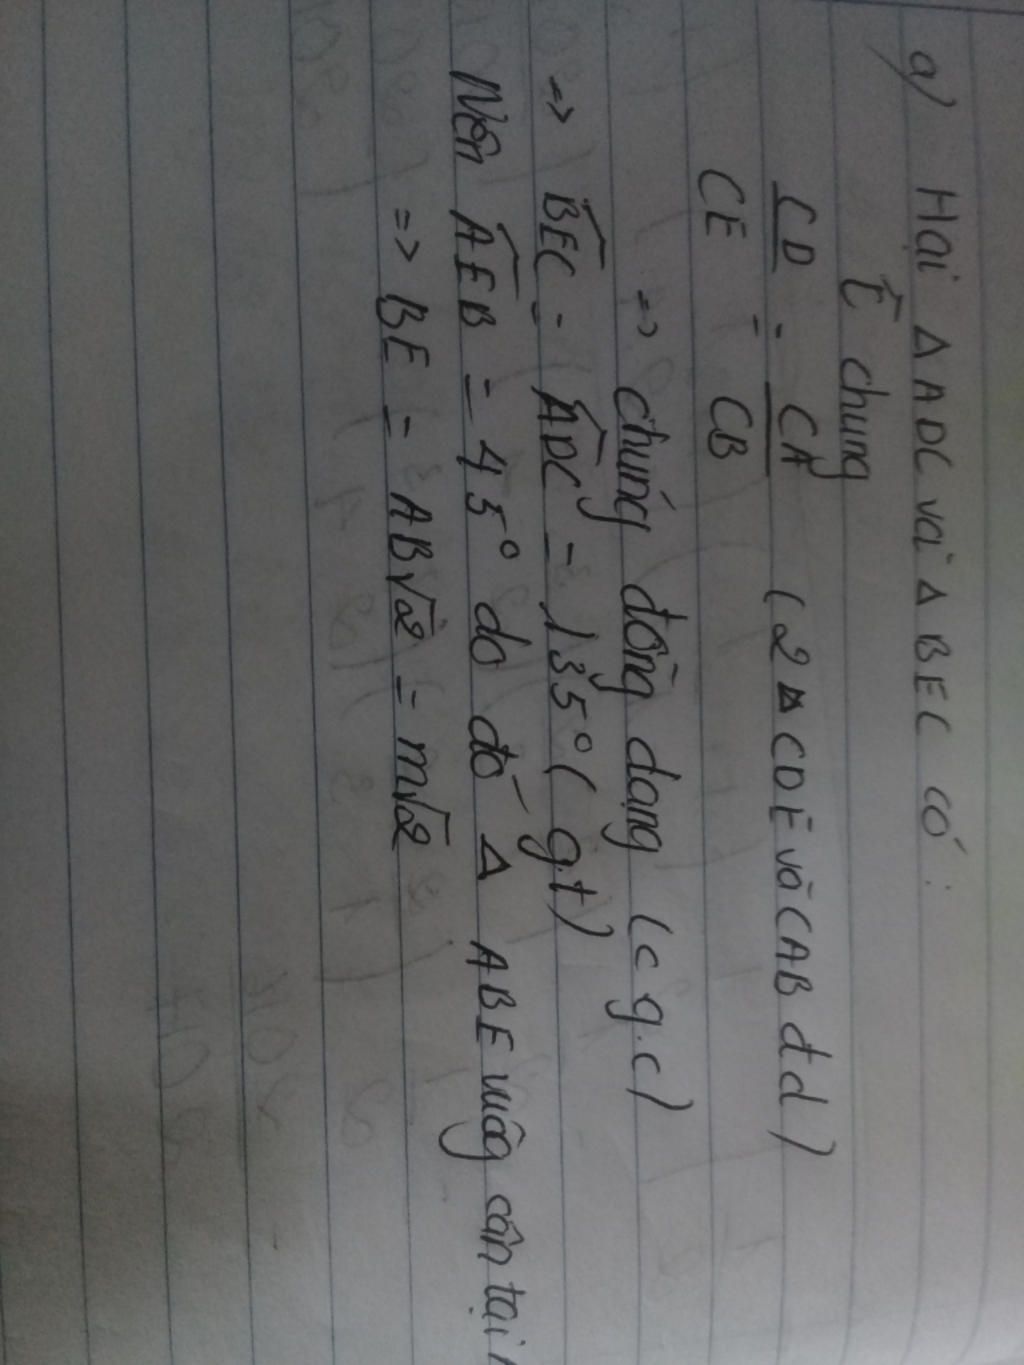 a) Hai Δ ADC và Δ BEC có:
Ĉ chung
CD = CA (2 Δ CDE và CAB đd)
CE CB
=> chúng đồng dạng (c g.c)
=> BEC = ADC = 135° (g.t)
Nên AEB = 45° do đó Δ ABE vuông cân tại A
=> BE = AB√2 = m√2